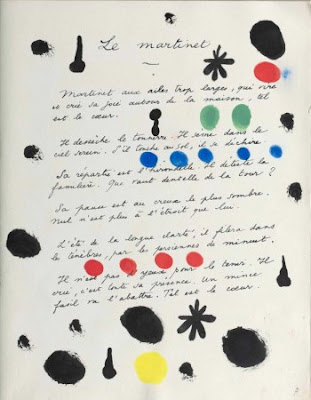 Le martinet
Martinet aux ailes trop larges, qui vire
et crie sa joie autour de la maison. Tel
est le cœur.
Il dessèche le tonnerre. Il sème dans le
ciel serein. S'il touche au sol, il se déchire.
Sa repartie est l'hirondelle. Il déteste la
familière. Que vaut dentelle de la tour ?
Sa pause est au creux le plus sombre.
Nul n'est plus à l'étroit que lui.
L'été de la longue clarté, il filera dans
les ténèbres, par les persiennes de minuit.
Il n'est pas d'yeux pour le tenir. Il
crie, c'est toute sa présence. Un mince
fusil va l'abattre. Tel est le cœur.